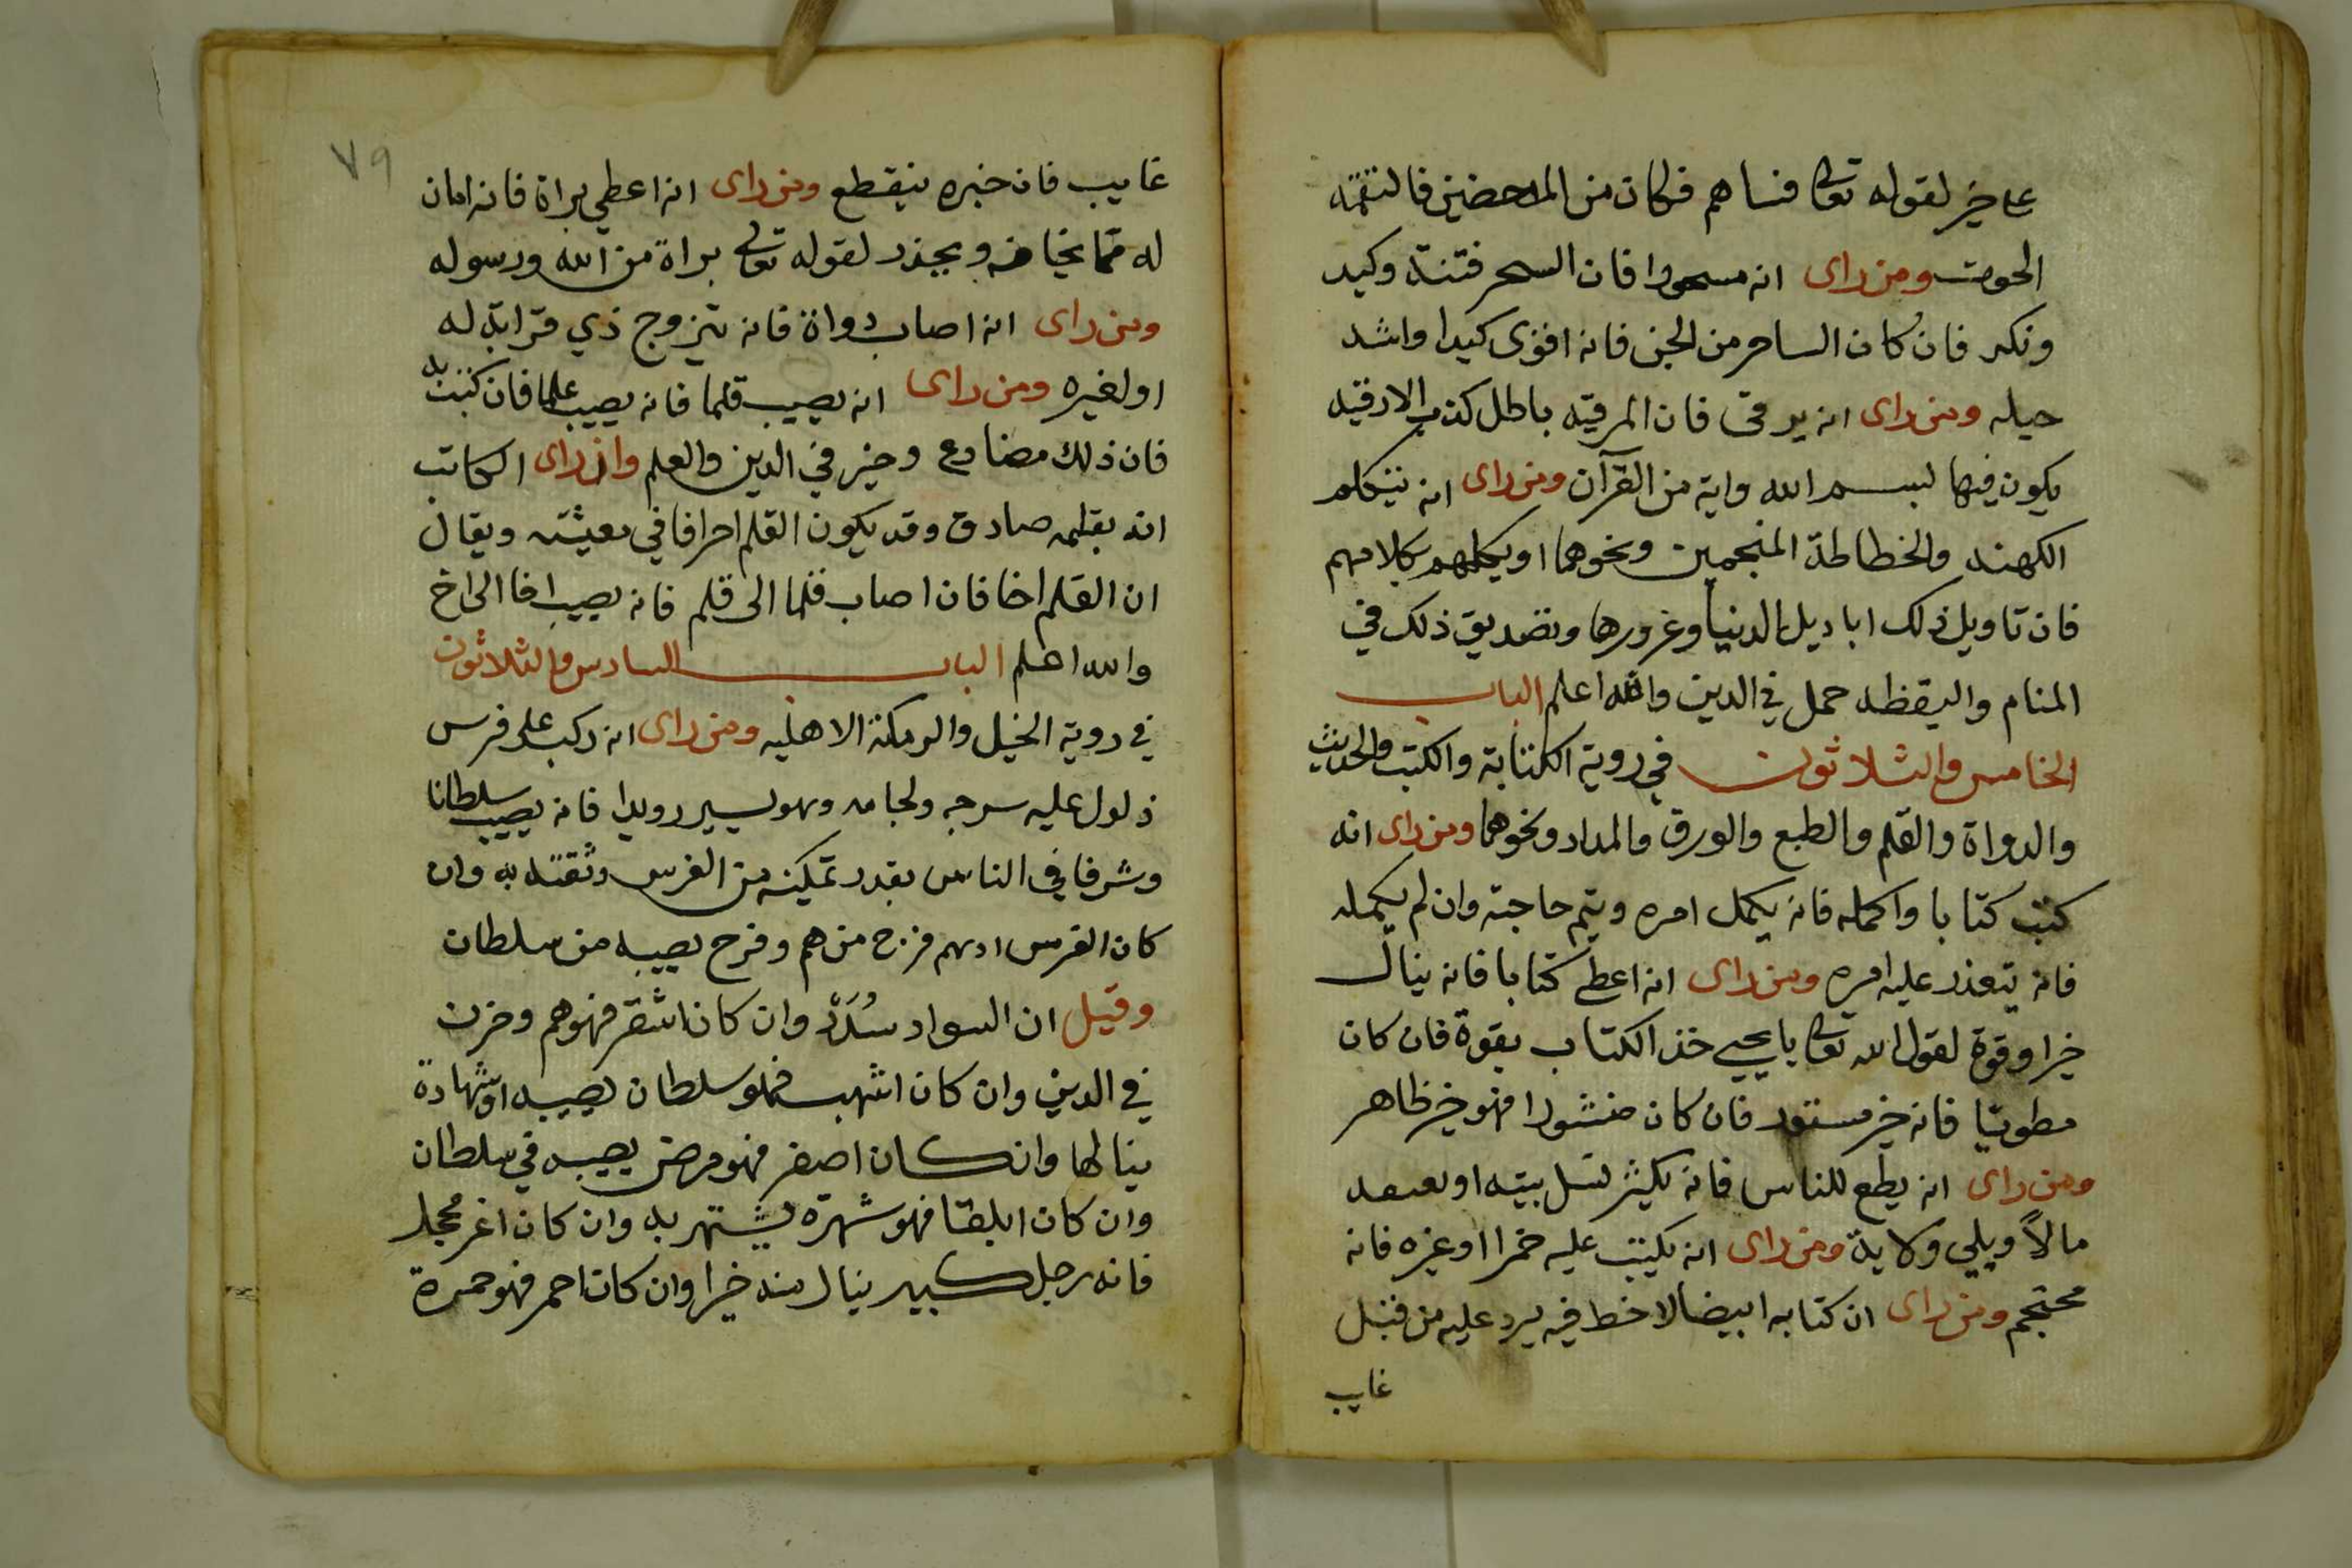 على خير لقوله تعالى فساهم فكان من المدحضين فالتقمه
الحوت ومن راى انه مسحورا فان السحر فتنة وكيد
ونكر فان كان الساحر من الجن فانه اقوى كيدا واشد
حيله ومن راى انه يرقى فان المرقيه باطل كذب الا رقيه
يكون فيها لبسم الله واية من القرآن ومن راى انه يتكلم
الكهنه والخطاطة المنجمين ونحوهما او يكلمهم بكلامهم
فان تاويل ذلك اباديل الدنيا وغرورها وتصديق ذلك في
المنام واليقظه حمل في الدين والله اعلم الباب
الخامس والثلاثون في روية الكتابة والكتب والحديث
والدواة والقلم والطبع والورق والمداد ونحوهما ومن راى انه
كتب كتابا واكمله فانه يكمل امره ويتم حاجته وان لم يكمله
فانه يتعذر عليه امره ومن راى انه اعطي كتابا فانه ينال
خيرا وقوة لقول الله تعالى يا يحيى خذ الكتاب بقوة فان كان
مطويا فانه خير مستور فان كان منشورا فهو خير ظاهر
ومن راى انه يطبع للناس فانه يكثر نسل بيته او
مالاً ويلي ولاية ومن راى انه يكتب عليه خمرا او غيره فانه
محتجم ومن راى ان كتابه ابيضا لا خط فيه يرد عليه من قبل
غايب
٧٩
غايب فان خبره ينقطع ومن راى انه اعطي براة فانه امان
له مما يخافه ويحذر لقوله تعالى براة من الله ورسوله
ومن راى انه اصاب دواة فانه يتزوج ذي قرابة له
او لغيره ومن راى انه يصيب قلما فانه يصيب علما فان كتب به
فان ذلك مضارع وخير في الدين والعلم وان راى الكاتب
انه بقلمه صادق وقد يكون القلم احرافا في معيشته ويقال
ان القلم اخا فان اصاب قلما الى قلم فانه يصيب اخا الى اخ
والله اعلم الباب السادس والثلاثون
في روية الخيل والرمكة الاهليه ومن راى انه ركب على فرس
ذلول عليه سرجه ولجامه وهو يسير رويدا فانه يصيب سلطانا
وشرفا في الناس بقدر تمكينه من الفرس وثقته به وان
كان الفرس ادهم فرج من هم وفرح يصيبه من سلطان
وقيل ان السواد سُدَدْ وان كان اشقر فهو هم وحزن
في الدين وان كان اشهب فهو سلطان يصيبه او شهادة
ينالها وان كان اصفر فهو مرض يصيبه في سلطان
وان كان ابلقا فهو شهرة يشتهر به وان كان اغر محجل
فانه رجل كبير ينال منه خيرا وان كان احمر فهو حمرة